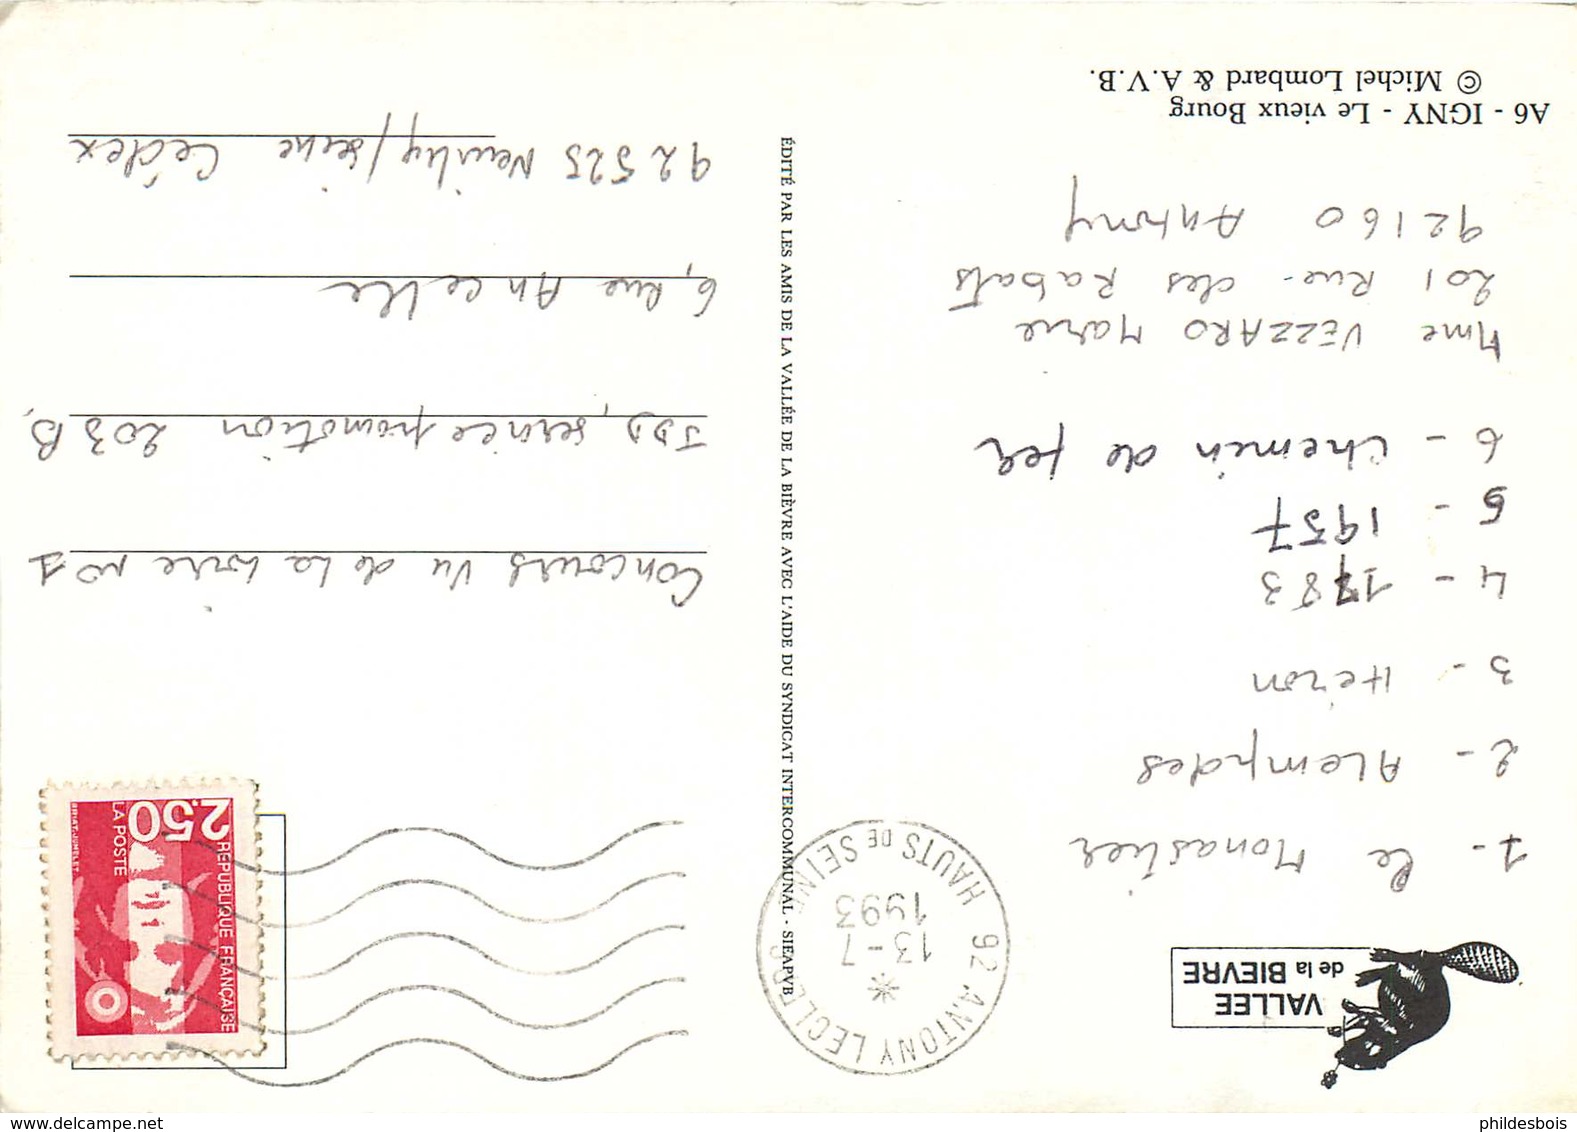 A6 - IGNY - Le vieux Bourg
© Michel Lombard & A.V.B.
VALLEE
de la BIEVRE
1- Le Monastier
2- Alempdes
3- Héron
4- 1783
5- 1957
6- Chemin de fer
Mme VEZZARO Marie
201 Rue des Rabats
92160 Antony
ÉDITÉ PAR LES AMIS DE LA VALLÉE DE LA BIÈVRE AVEC L'AIDE DU SYNDICAT INTERCOMMUNAL - SIEAPVB
92 ANTONY LECLERC
HAUTS DE SEINE
13-7
1993
REPUBLIQUE FRANÇAISE
2,50
LA POSTE
BRIAT-JUMELET
Concours Vu de la Loire N° 1
JDD, service promotion 203 B,
6, Rue Ancelle
92525 Neuilly/seine Cédex
phildesbois